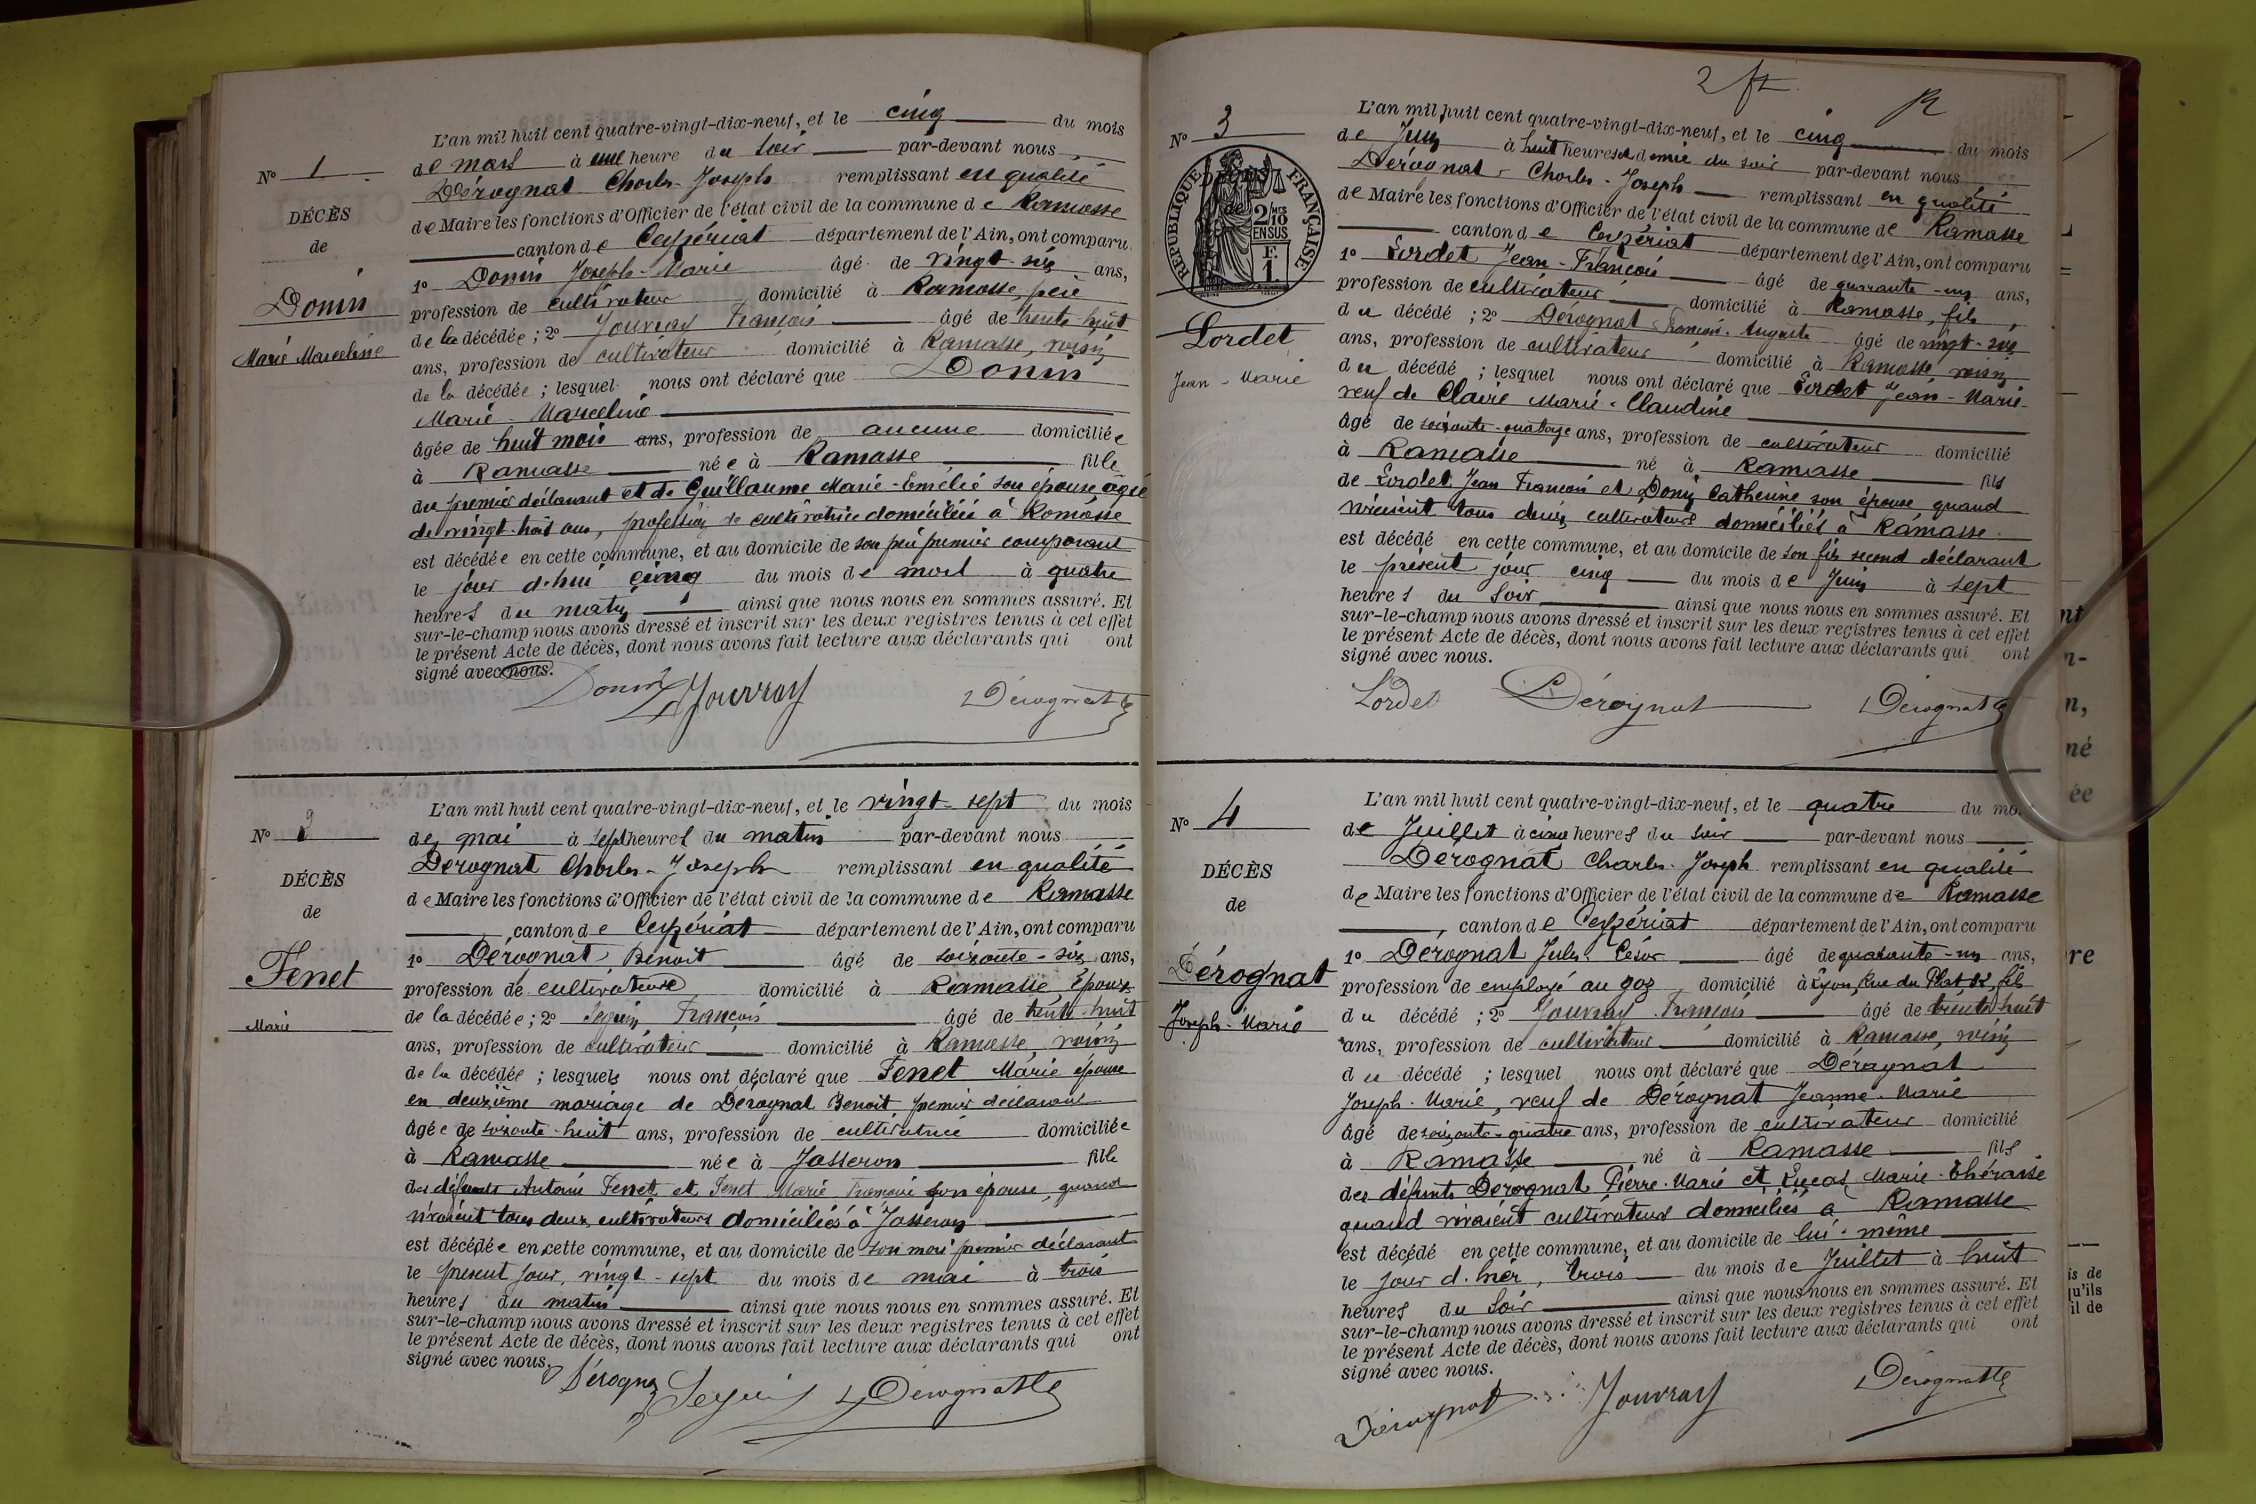 N° 1
DÉCÈS
de
Donin
Marie Marceline
L'an mil huit cent quatre-vingt-dix-neuf, et le cinq du mois
de mars à une heure du soir par-devant nous
Dérognat Charles-Joseph remplissant en qualité
de Maire les fonctions d'Officier de l'état civil de la commune de Ramasse
canton de Ceyzériat département de l'Ain, ont comparu
1° Donin Joseph-Marie âgé de vingt-six ans,
profession de cultivateur domicilié à Ramasse, père
de la décédée ; 2° Jouvray François âgé de trente-huit
ans, profession de cultivateur domicilié à Ramasse, voisin
de la décédée ; lesquel nous ont déclaré que Donin
Marie-Marceline
âgée de huit mois ans, profession de aucune domiciliée
à Ramasse née à Ramasse fille
du premier déclarant et de Guillaume Marie-Emélie son épouse agée
de vingt-huit ans, profession de cultivatrice domiciliée à Ramasse
est décédée en cette commune, et au domicile de son père premier comparant
le jour d'hui cinq du mois de mars à quatre
heures du matin ainsi que nous nous en sommes assuré. Et
sur-le-champ nous avons dressé et inscrit sur les deux registres tenus à cet effet
le présent Acte de décès, dont nous avons fait lecture aux déclarants qui ont
signé avec nous.
Donin Jouvray Dérognat
N° 2
DÉCÈS
de
Fenet
Marie
L'an mil huit cent quatre-vingt-dix-neuf, et le vingt-sept du mois
de mai à sept heures du matin par-devant nous
Dérognat Charles-Joseph remplissant en qualité
de Maire les fonctions d'Officier de l'état civil de la commune de Ramasse
canton de Ceyzériat département de l'Ain, ont comparu
1° Dérognat, Benoit âgé de soixante-six ans,
profession de cultivateur domicilié à Ramasse Epoux
de la décédée ; 2° Seguin François âgé de trente-huit
ans, profession de cultivateur domicilié à Ramasse, voisin
de la décédée ; lesquels nous ont déclaré que Fenet Marie épouse
en deuxième mariage de Dérognat Benoit, premier déclarant
âgée de soixante-huit ans, profession de cultivatrice domiciliée
à Ramasse née à Jasseron fille
des défunts Antoine Fenet et Fenet Marie Françoise son épouse, quand
vivaient tous deux cultivateurs domiciliés à Jasseron
est décédée en cette commune, et au domicile de son mari premier déclarant
le présent jour, vingt-sept du mois de mai à trois
heures du matin ainsi que nous nous en sommes assuré. Et
sur-le-champ nous avons dressé et inscrit sur les deux registres tenus à cet effet
le présent Acte de décès, dont nous avons fait lecture aux déclarants qui ont
signé avec nous.
Dérogna Seguin Dérognat
N° 3
RÉPUBLIQUE FRANÇAISE
2/10 EN SUS
F. 1
Lordet
Jean-Marie
L'an mil huit cent quatre-vingt-dix-neuf, et le cinq du mois
de Juin à huit heures et demie du soir par-devant nous
Dérognat Charles-Joseph remplissant en qualité
de Maire les fonctions d'Officier de l'état civil de la commune de Ramasse
canton de Ceyzériat département de l'Ain, ont comparu
1° Lordet Jean-François âgé de quarante-un ans,
profession de cultivateur domicilié à Ramasse, fils
du décédé ; 2° Dérognat François-Auguste âgé de vingt-six
ans, profession de cultivateur domicilié à Ramasse voisin
du décédé ; lesquel nous ont déclaré que Lordet Jean-Marie
veuf de Claire Marie-Claudine
âgé de soixante-quatorze ans, profession de cultivateur domicilié
à Ramasse né à Ramasse fils
de Lordet, Jean François et Donin Catherine son épouse quand
vivaient tous deux cultivateurs domiciliés à Ramasse
est décédé en cette commune, et au domicile de son fils second déclarant
le présent jour cinq du mois de Juin à sept
heures du soir ainsi que nous nous en sommes assuré. Et
sur-le-champ nous avons dressé et inscrit sur les deux registres tenus à cet effet
le présent Acte de décès, dont nous avons fait lecture aux déclarants qui ont
signé avec nous.
Lordet Dérognat Dérognat
N° 4
DÉCÈS
de
Dérognat
Joseph-Marie
L'an mil huit cent quatre-vingt-dix-neuf, et le quatre du mo
de Juillet à cinq heures du soir par-devant nous
Dérognat Charles-Joseph remplissant en qualité
de Maire les fonctions d'Officier de l'état civil de la commune de Ramasse
canton de Ceyzériat département de l'Ain, ont comparu
1° Dérognat Jules César âgé de quarante-un ans,
profession de employé au gaz domicilié à Lyon, Rue du Plat, fils
du décédé ; 2° Jouvray François âgé de trente-huit
ans, profession de cultivateur domicilié à Ramasse, voisin
du décédé ; lesquel nous ont déclaré que Dérognat
Joseph-Marie, veuf de Dérognat Jeanne-Marie
âgé de soixante-quatre ans, profession de cultivateur domicilié
à Ramasse né à Ramasse fils
des défunts Dérognat Pierre-Marie et Lucas Marie-Thérasie
quand vivaient cultivateurs domiciliés à Ramasse
est décédé en cette commune, et au domicile de lui-même
le jour d'hier, trois du mois de Juillet à huit
heures du soir ainsi que nous nous en sommes assuré. Et
sur-le-champ nous avons dressé et inscrit sur les deux registres tenus à cet effet
le présent Acte de décès, dont nous avons fait lecture aux déclarants qui ont
signé avec nous.
Dérognat Jouvray Dérognat